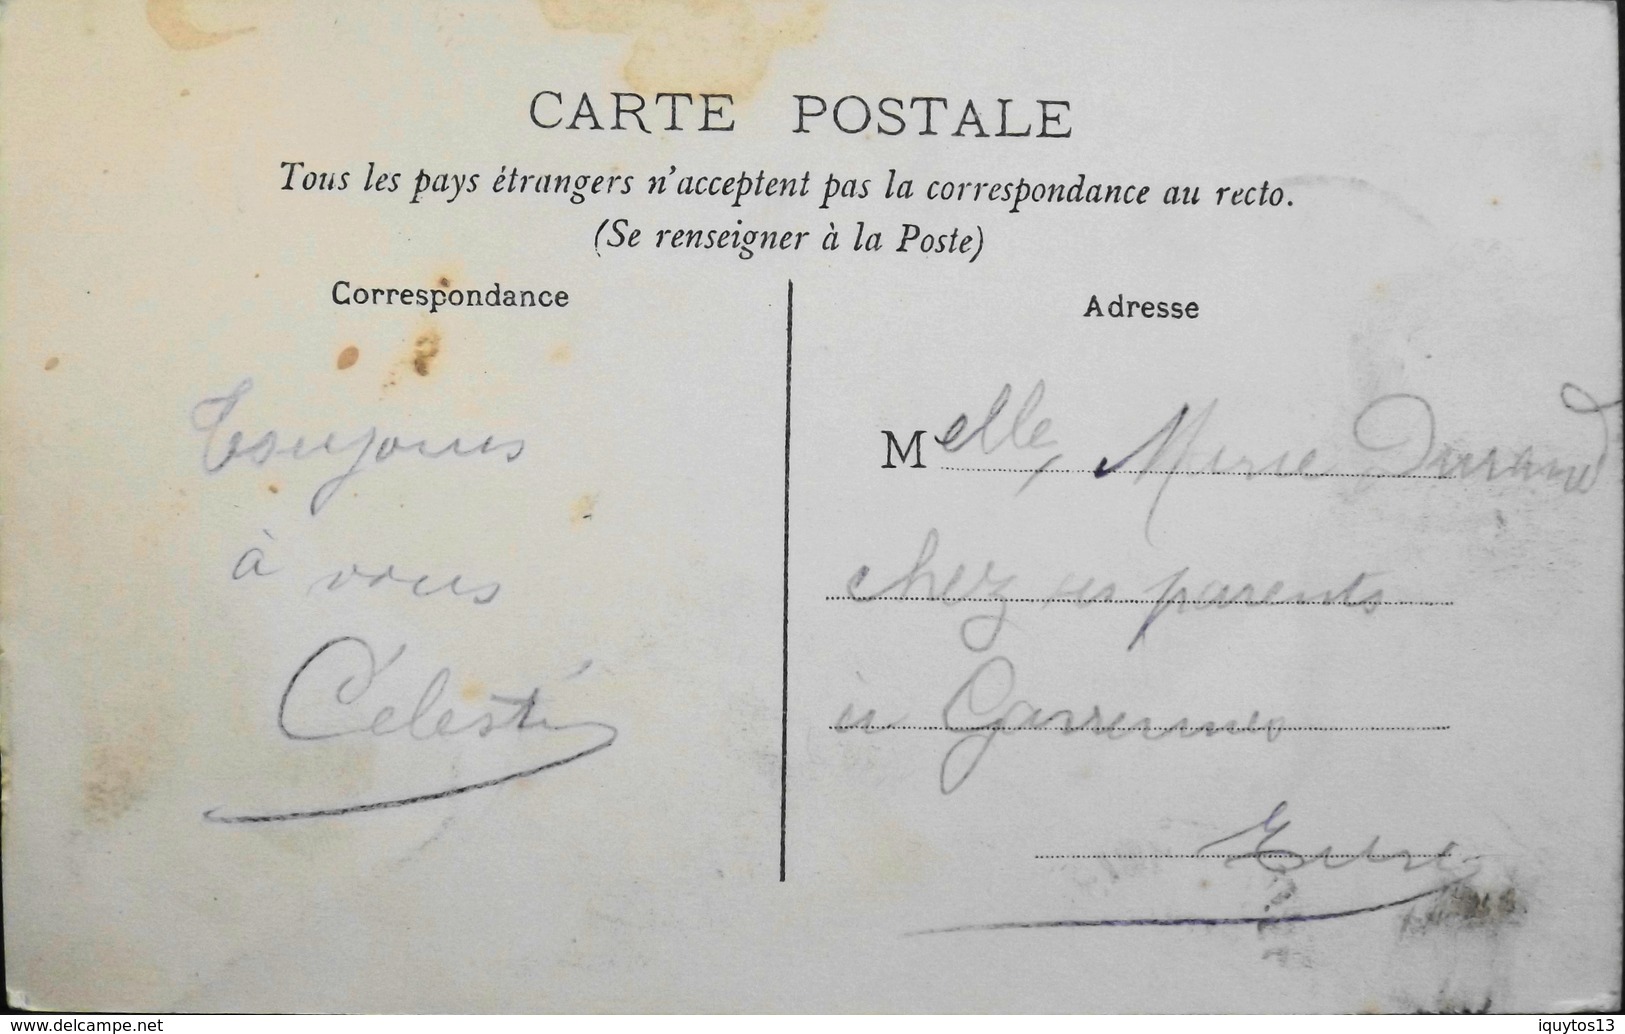 CARTE POSTALE
Tous les pays étrangers n'acceptent pas la correspondance au recto.
(Se renseigner à la Poste)
Correspondance
Adresse
Toujours
à vous
Célestin
Melle, Marie Durand
chez ses parents
à Garennes
Eure
www.delcampe.net
iquytos13